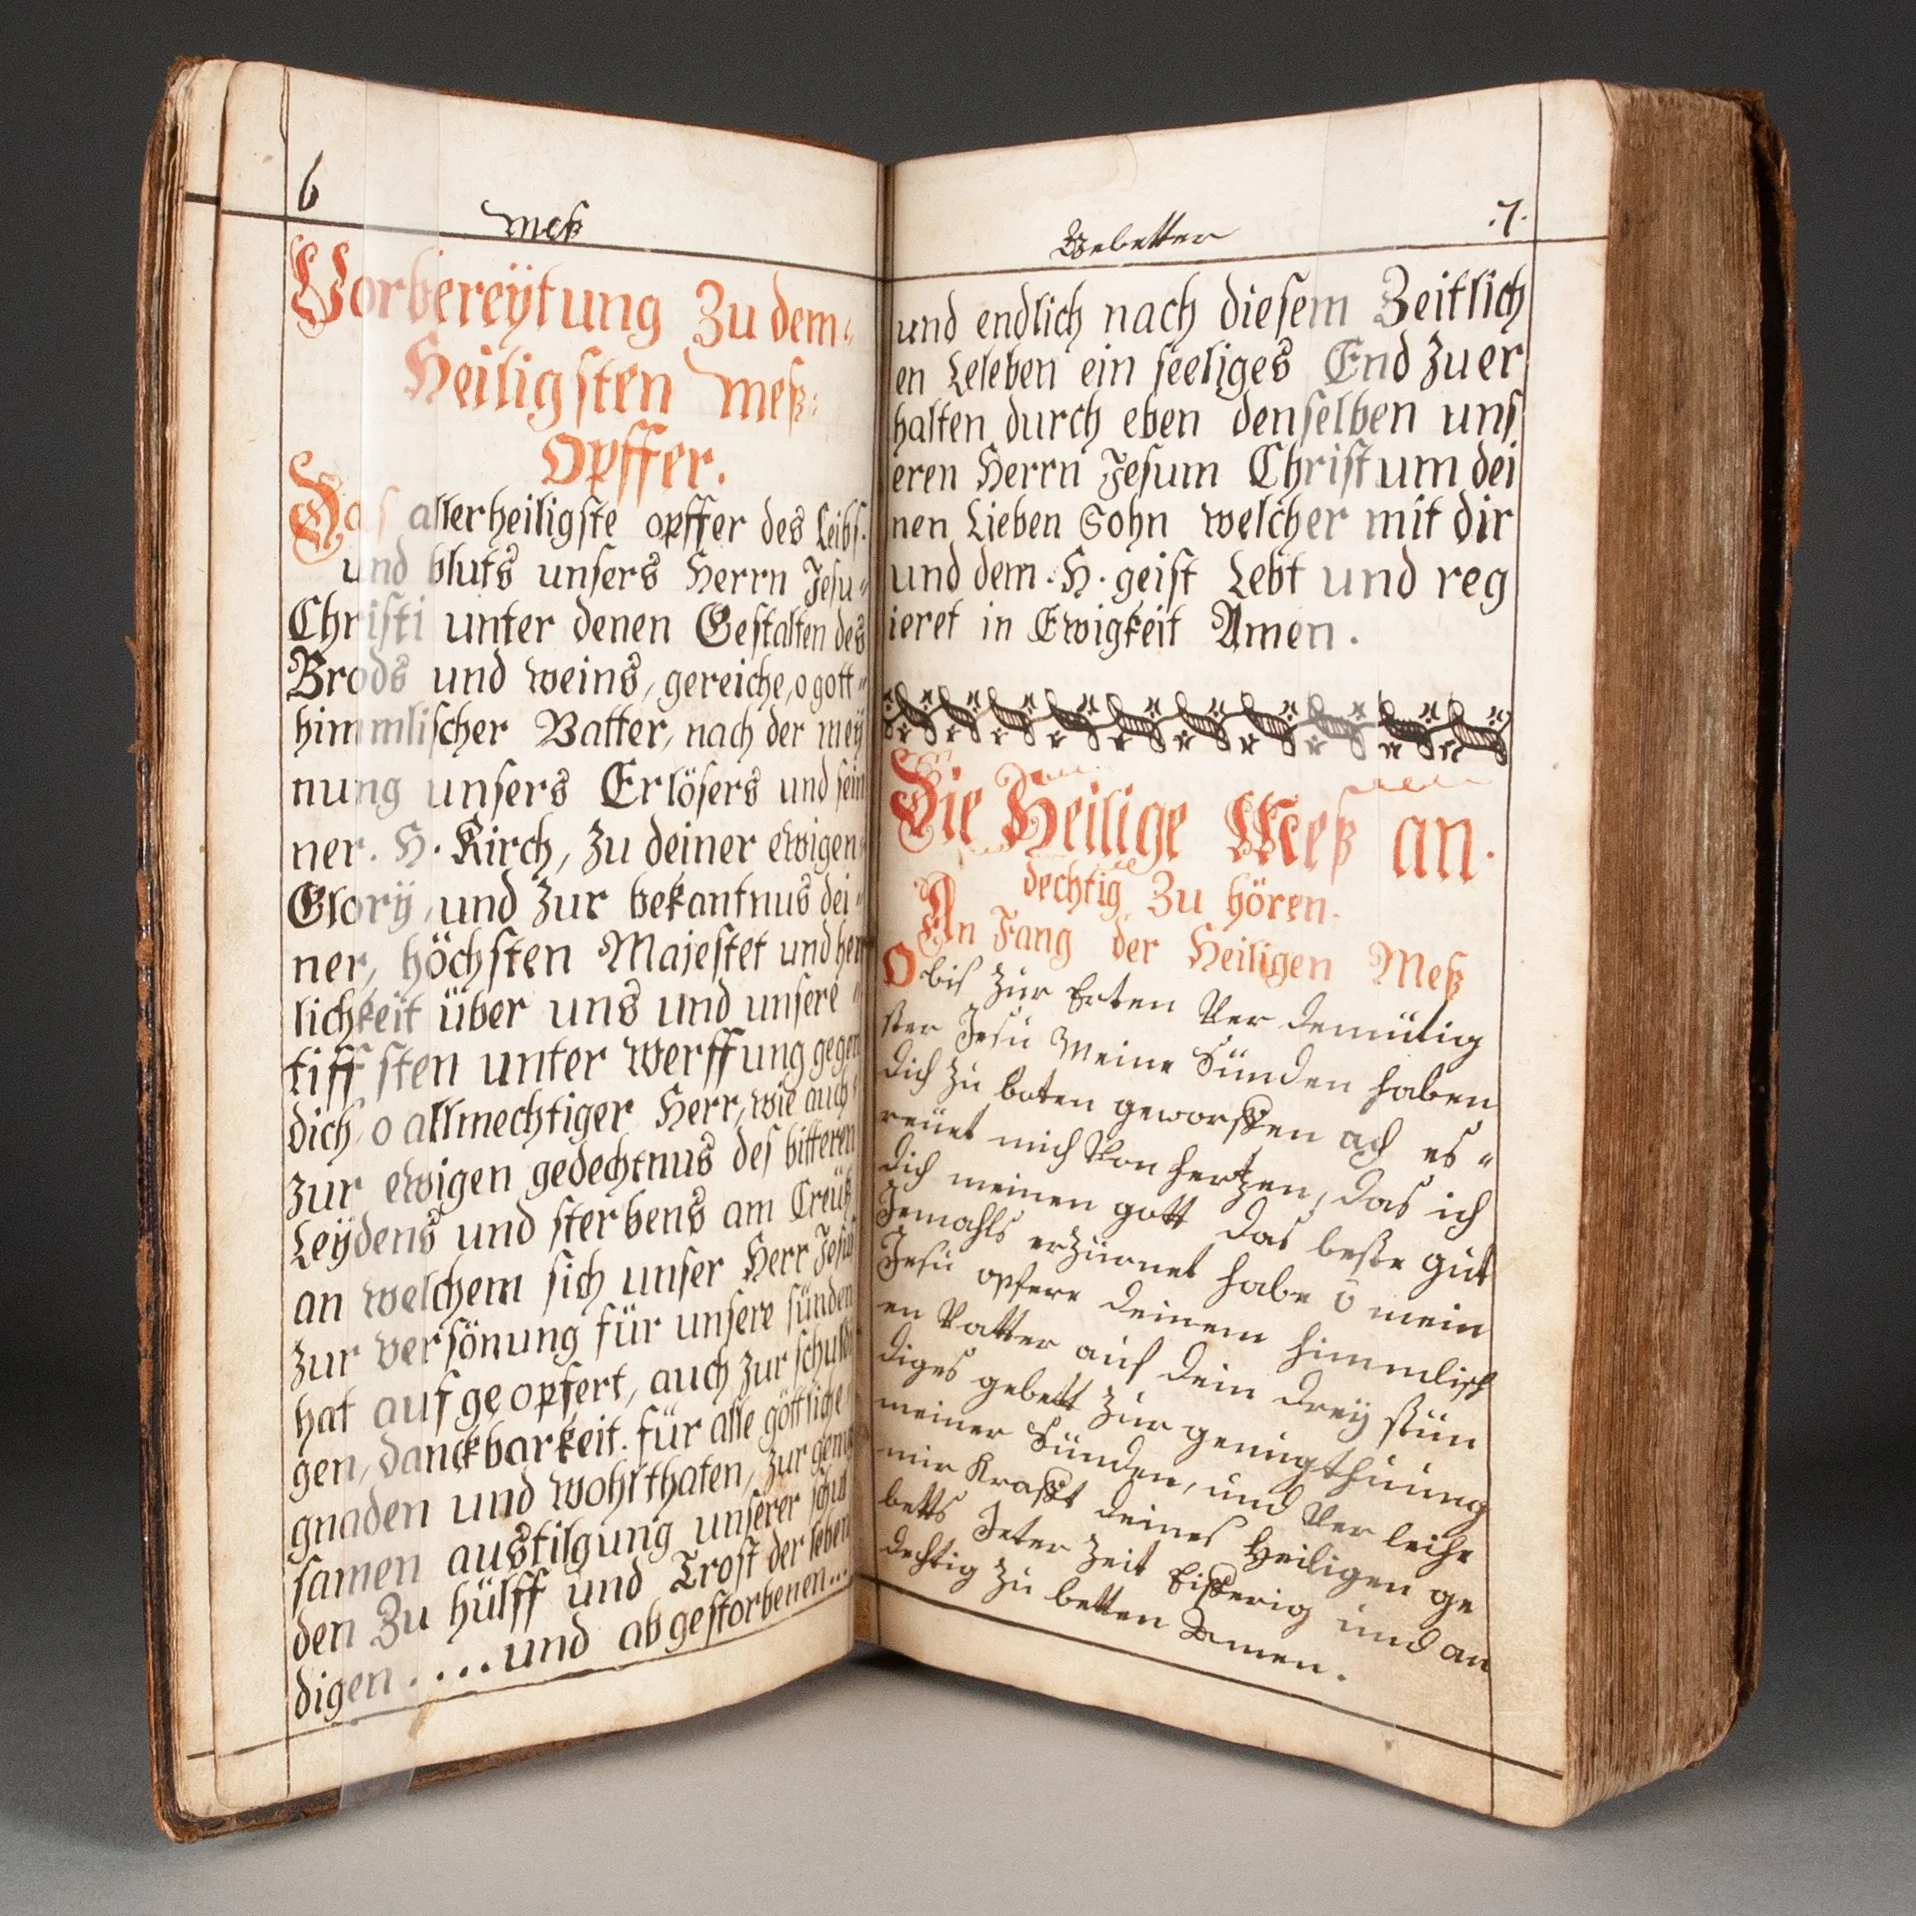 6
Meß
Vorbereÿtung Zu dem
Heiligsten Meß:
Opffer.
Das allerheiligste opffer des Leibs
und bluts unsers Herrn Jesu
Christi unter denen Gestalten des
Brods und weins, gereiche, o gott
himmlischer Vatter, nach der meÿ
nung unsers Erlösers und sei
ner. H. Kirch, zu deiner ewigen
Glory, und zur bekantnus dei
ner, höchsten Majestet und her
lichkeit über uns und unsere
tiffsten unter werffung gegen
dich, o allmechtiger Herr, wie auch
zur ewigen gedechtnus des bitteren
Leÿdens und sterbens am Creütz
an welchem sich unser Herr Jesus
zur versönung für unsere sünden
hat aufgeopfert, auch zur schuldi
gen, danckbarkeit. für alle göttliche
gnaden und wohlthaten, zur genug
samen austilgung unserer schul
den Zu hülff und Trost der leben
digen .... und abgestorbenen...
Gebetter
.7.
und endlich nach diesem Zeitlich
en Leleben ein seeliges End zu er
halten durch eben denselben uns
eren Herrn Jesum Christum dei
nen Lieben Sohn welcher mit dir
und dem. H. geist Lebt und reg
ieret in Ewigkeit Amen.
Die Heilige Meß an.
dechtig Zu hören.
An Fang der Heiligen Meß
O bis zur Erten Ver demütig
ster Jesu Meine Sünden haben
dich zu boten geworffen ach es
reüet mich Von hertzen, das ich
dich meinen gott das beste gut
Jemahls erzürnet habe ô mein
Jesu opfere deinem himmlisch
en Vatter auf dein dreÿ stün
diges gebett zur genugthuung
meiner Sünden, und Ver leihe
mir Krafft deines Heiligen ge
betts Jeter Zeit Eifferig und an
dechtig zu betten Amen.